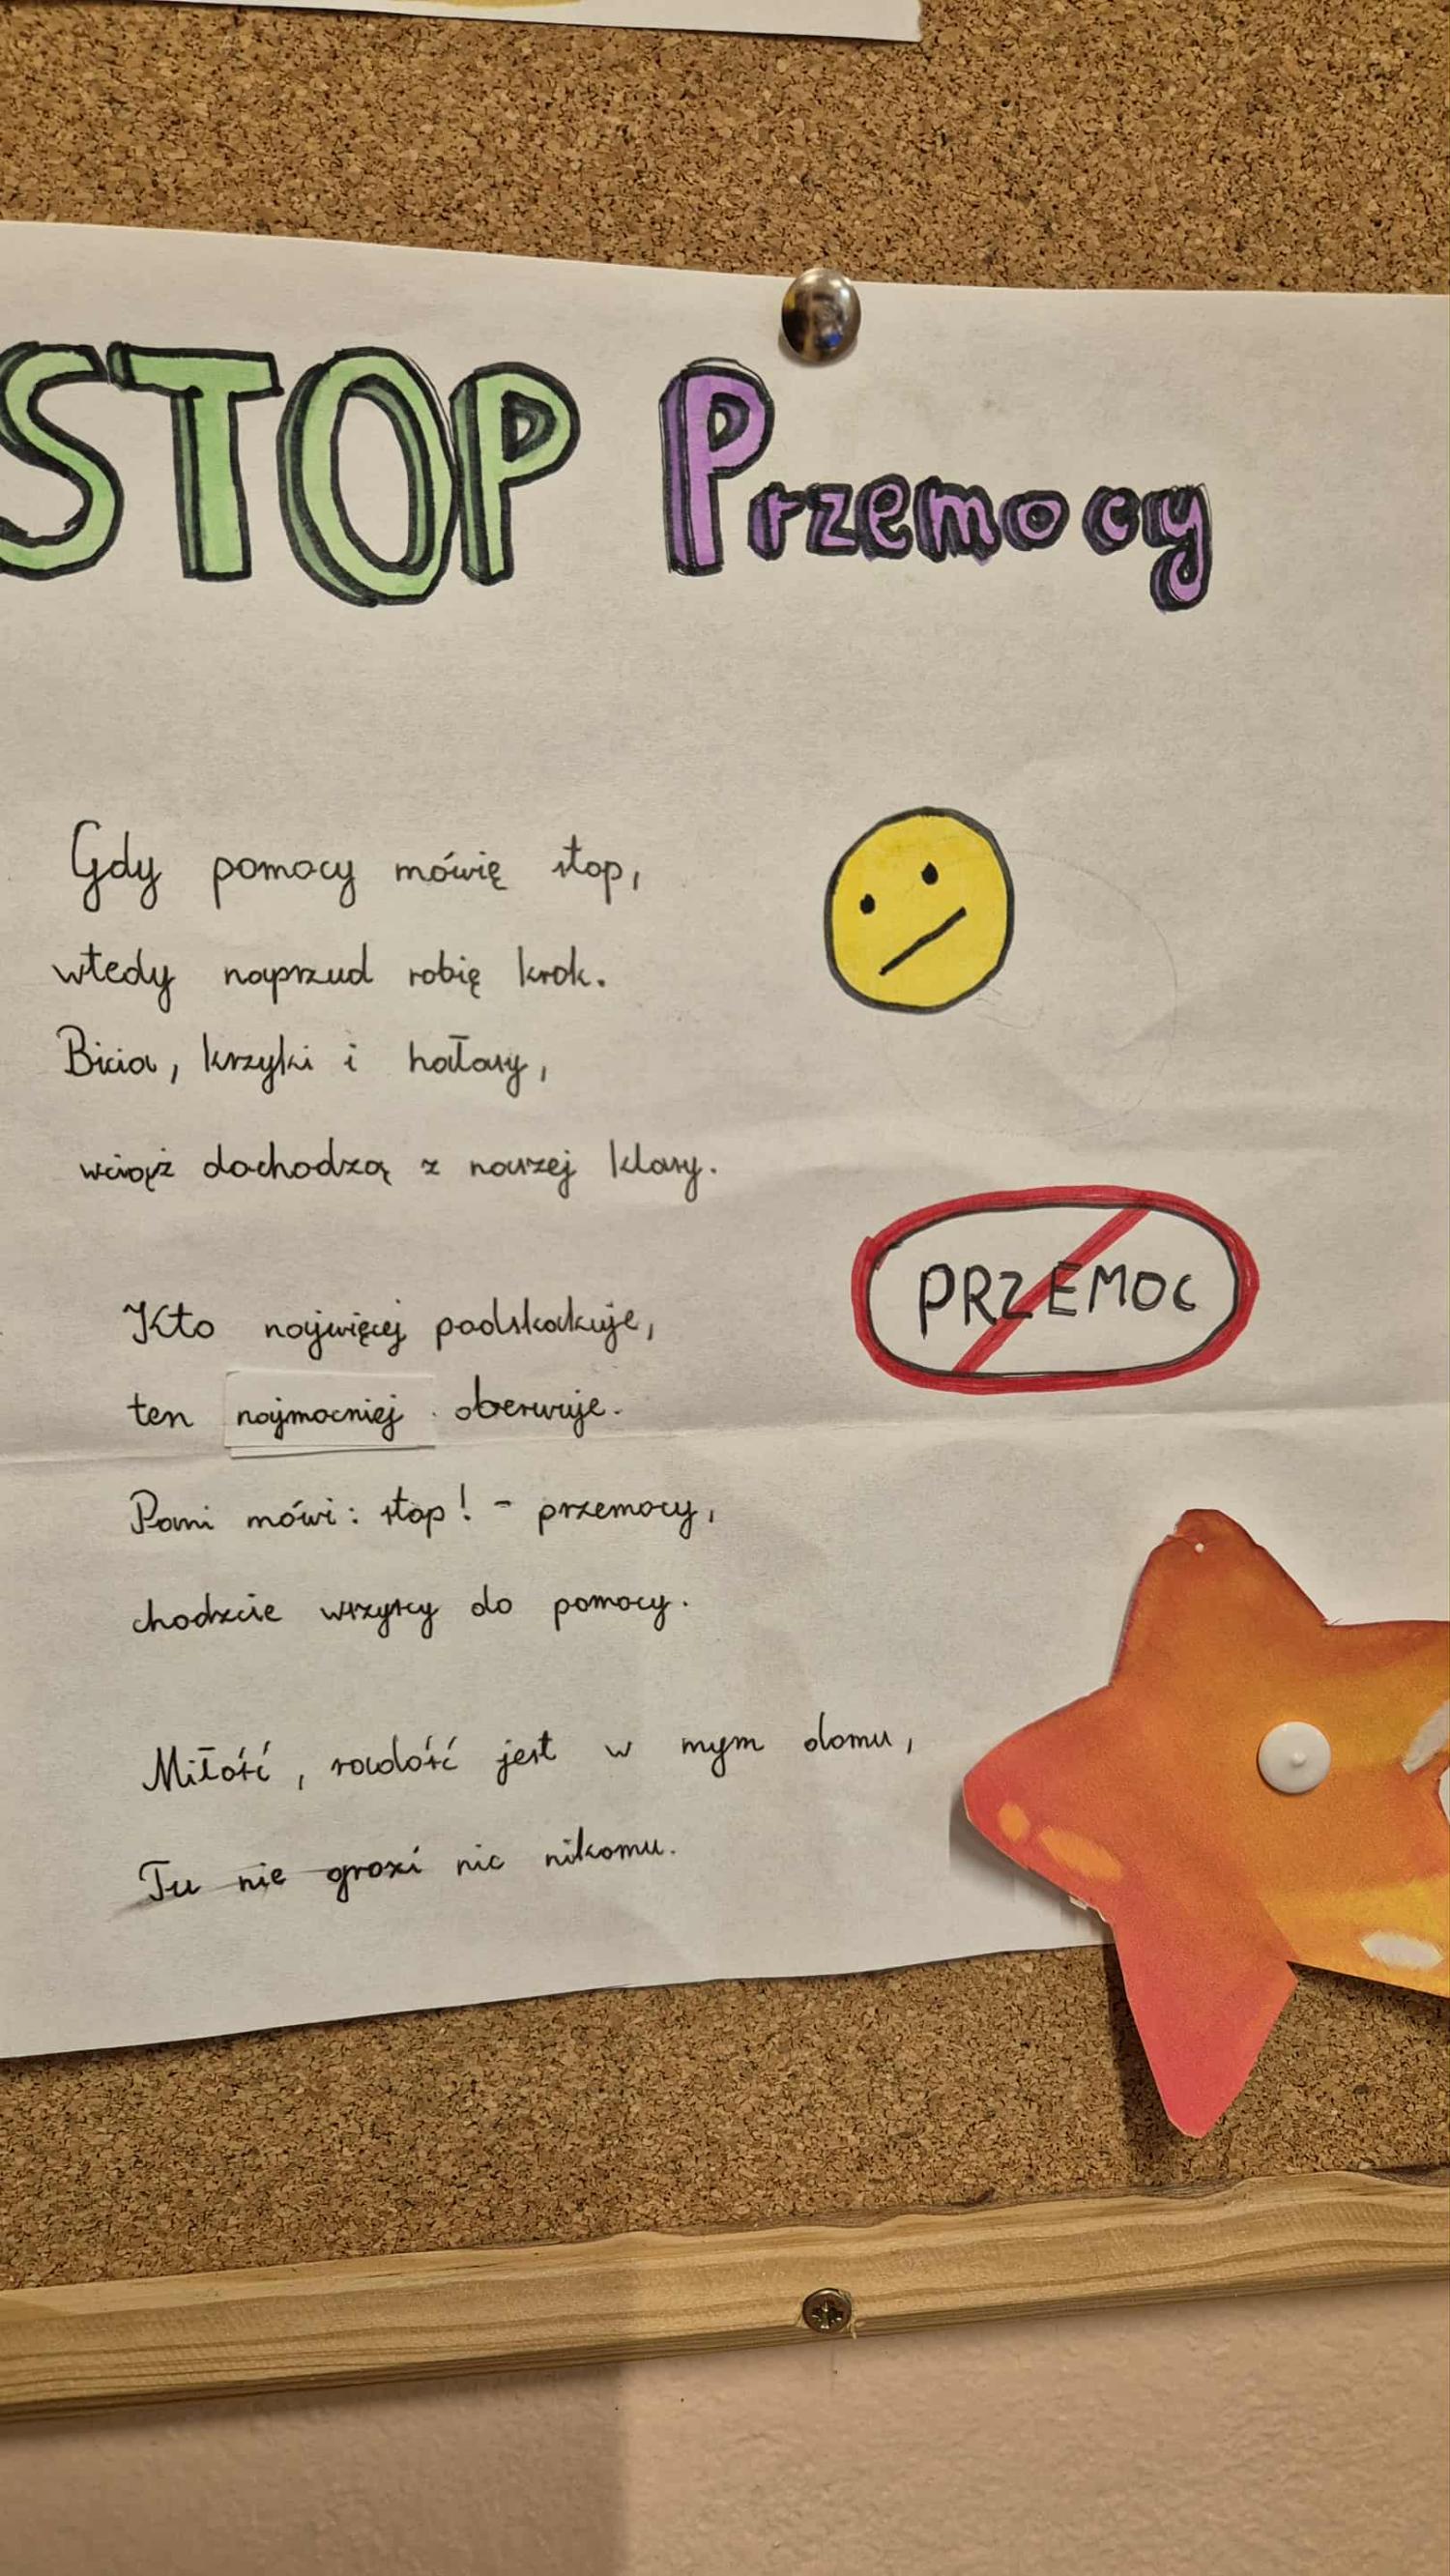 STOP Przemocy
Gdy pomocy mówię stop,
wtedy naprzud robię krok.
Bicia, krzyki i hałasy,
wciąż dochodzą z naszej klasy.
PRZEMOC
Kto najwięcej podskakuje,
ten najmocniej oberwuje.
Pani mówi: stop! - przemocy,
chodzcie wszyscy do pomocy.
Miłość, radość jest w mym domu,
Tu nie grozi nic nikomu.